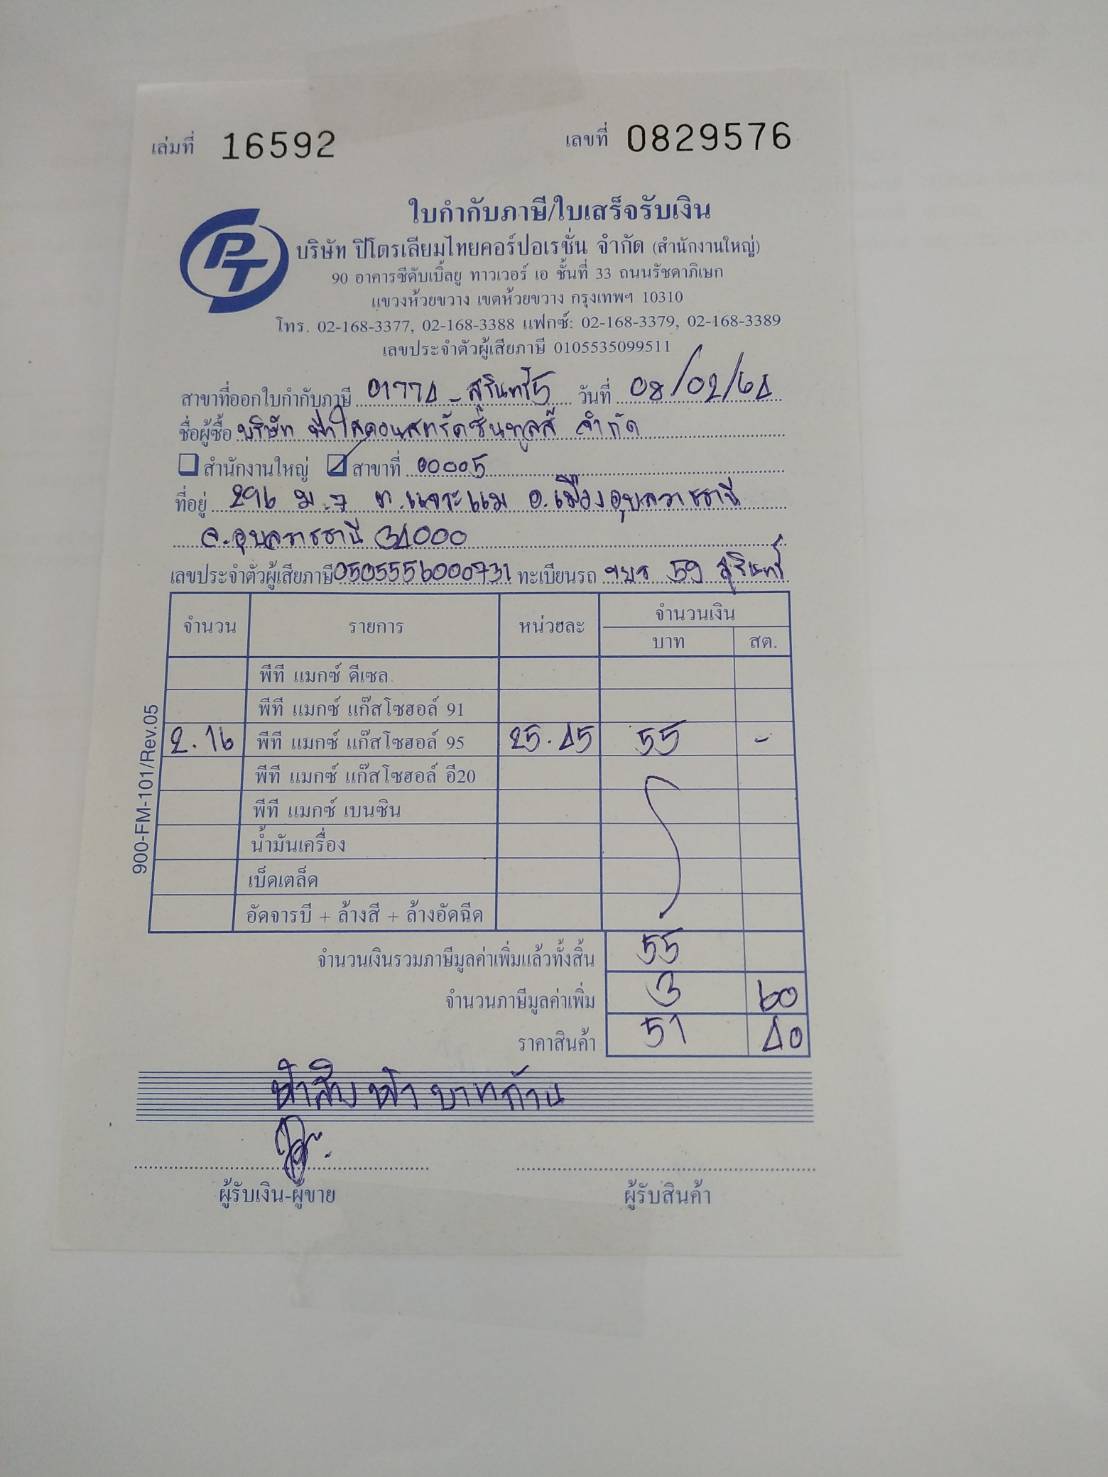 เล่มที่ 16592 เลขที่ 0829576
PT
ใบกำกับภาษี/ใบเสร็จรับเงิน
บริษัท ปิโตรเลียมไทยคอร์ปอเรชั่น จำกัด (สำนักงานใหญ่)
90 อาคารซีดับเบิ้ลยู ทาวเวอร์ เอ ชั้นที่ 33 ถนนรัชดาภิเษก
แขวงห้วยขวาง เขตห้วยขวาง กรุงเทพฯ 10310
โทร. 02-168-3377, 02-168-3388 แฟกซ์: 02-168-3379, 02-168-3389
เลขประจำตัวผู้เสียภาษี 0105535099511
สาขาที่ออกใบกำกับภาษี 01774 - สุรินทร์5 วันที่ 08/02/64
ชื่อผู้ซื้อ บริษัท ฟ้าใสคอนสทรัคชั่นทูลส์ จำกัด
สำนักงานใหญ่ สาขาที่ 00005
ที่อยู่ 296 ม.7 ต.แจระแม อ.เมืองอุบลราชธานี
จ.อุบลราชธานี 34000
เลขประจำตัวผู้เสียภาษี 0505556000731 ทะเบียนรถ 59 สุรินทร์
จำนวน รายการ หน่วยละ จำนวนเงิน
บาท สต.
พีที แมกซ์ ดีเซล
พีที แมกซ์ แก๊สโซฮอล์ 91
2.16 พีที แมกซ์ แก๊สโซฮอล์ 95 25.45 55 -
พีที แมกซ์ แก๊สโซฮอล์ อี20
พีที แมกซ์ เบนซิน
น้ำมันเครื่อง
เบ็ดเตล็ด
อัดจารบี + ล้างสี + ล้างอัดฉีด
จำนวนเงินรวมภาษีมูลค่าเพิ่มแล้วทั้งสิ้น 55
จำนวนภาษีมูลค่าเพิ่ม 3 60
ราคาสินค้า 51 40
ห้าสิบห้าบาทถ้วน
ผู้รับเงิน-ผู้ขาย ผู้รับสินค้า
900-FM-101/Rev.05